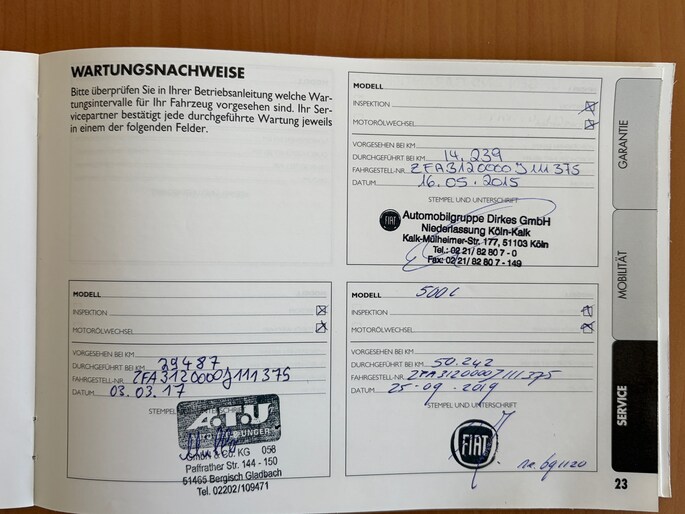 WARTUNGSNACHWEISE
Bitte überprüfen Sie in Ihrer Betriebsanleitung welche War-
tungsintervalle für Ihr Fahrzeug vorgesehen sind. Ihr Ser-
vicepartner bestätigt jede durchgeführte Wartung jeweils
in einem der folgenden Felder.
MODELL
INSPEKTION
MOTORÖLWECHSEL
VORGESEHEN BEI KM
DURCHGEFÜHRT BEI KM 14.239
FAHRGESTELL-NR. ZFA3120000J111375
DATUM 16.05.2015
STEMPEL UND UNTERSCHRIFT
FIAT
Automobilgruppe Dirkes GmbH
Niederlassung Köln-Kalk
Kalk-Mülheimer-Str. 177, 51103 Köln
Tel.: 02 21/ 82 80 7 - 0
Fax: 02 21/ 82 80 7 - 149
MODELL
INSPEKTION
MOTORÖLWECHSEL
VORGESEHEN BEI KM
DURCHGEFÜHRT BEI KM 29487
FAHRGESTELL-NR. ZFA3120000J111375
DATUM 03.03.17
STEMPEL UNTERSCHRIFT
A.T.U
GmbH & Co. KG 058
Paffrather Str. 144 - 150
51465 Bergisch Gladbach
Tel. 02202/109471
MODELL 500C
INSPEKTION
MOTORÖLWECHSEL
VORGESEHEN BEI KM
DURCHGEFÜHRT BEI KM 50.242
FAHRGESTELL-NR. ZFA3120000J111375
DATUM 25-09-2019
STEMPEL UND UNTERSCHRIFT
FIAT
GARANTIE
MOBILITÄT
SERVICE
23